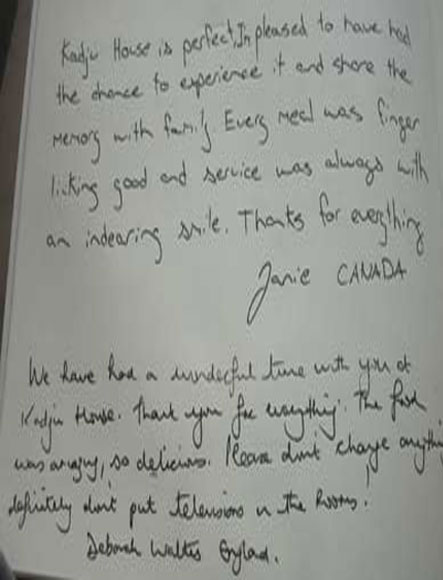 Kadju House is perfect, I'm pleased to have had
the chance to experience it and share the
memory with family. Every meal was finger
licking good and service was always with
an indearing smile. Thanks for everything
Janie CANADA
We have had a wonderful time with you at
Kadju House. Thank you for everything. The food
was amazing, so delicious. Please don't change anything
definitely don't put televisions in the Rooms!
Deborah Walters England.